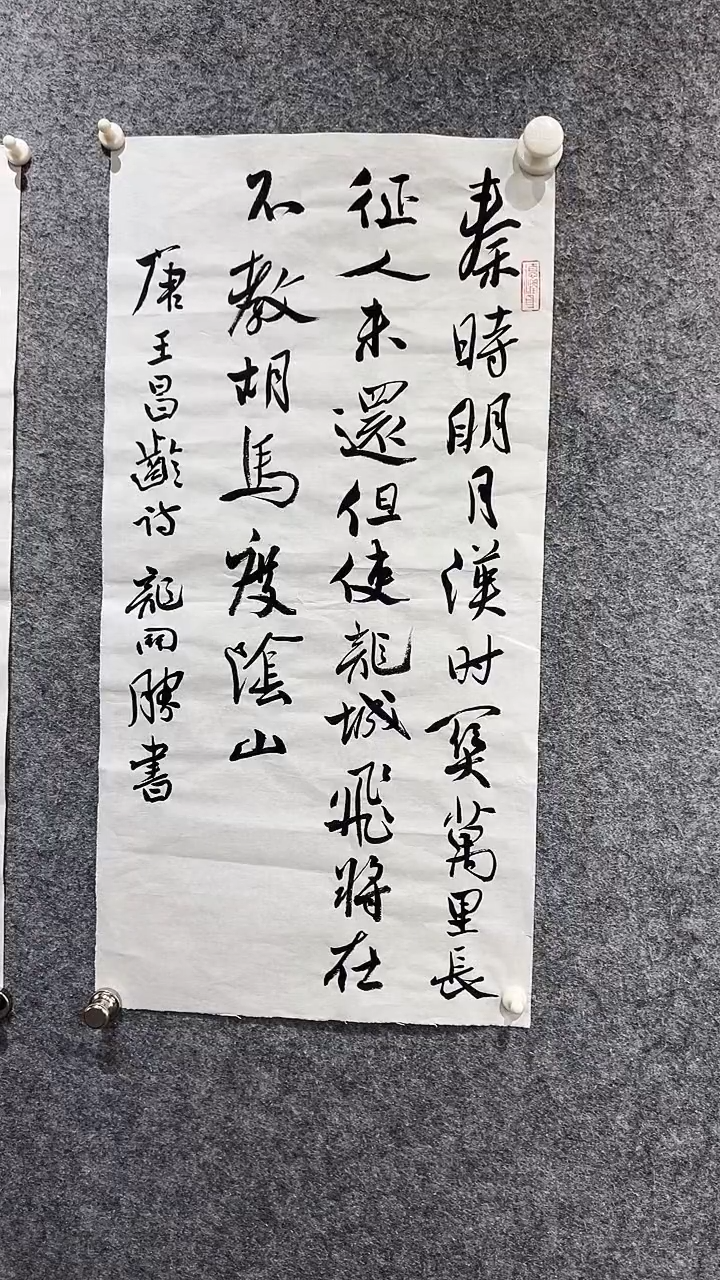 秦時明月漢时関萬里長
征人未還但使龍城飛將在
不教胡馬度陰山
唐王昌齡诗 龍開勝書